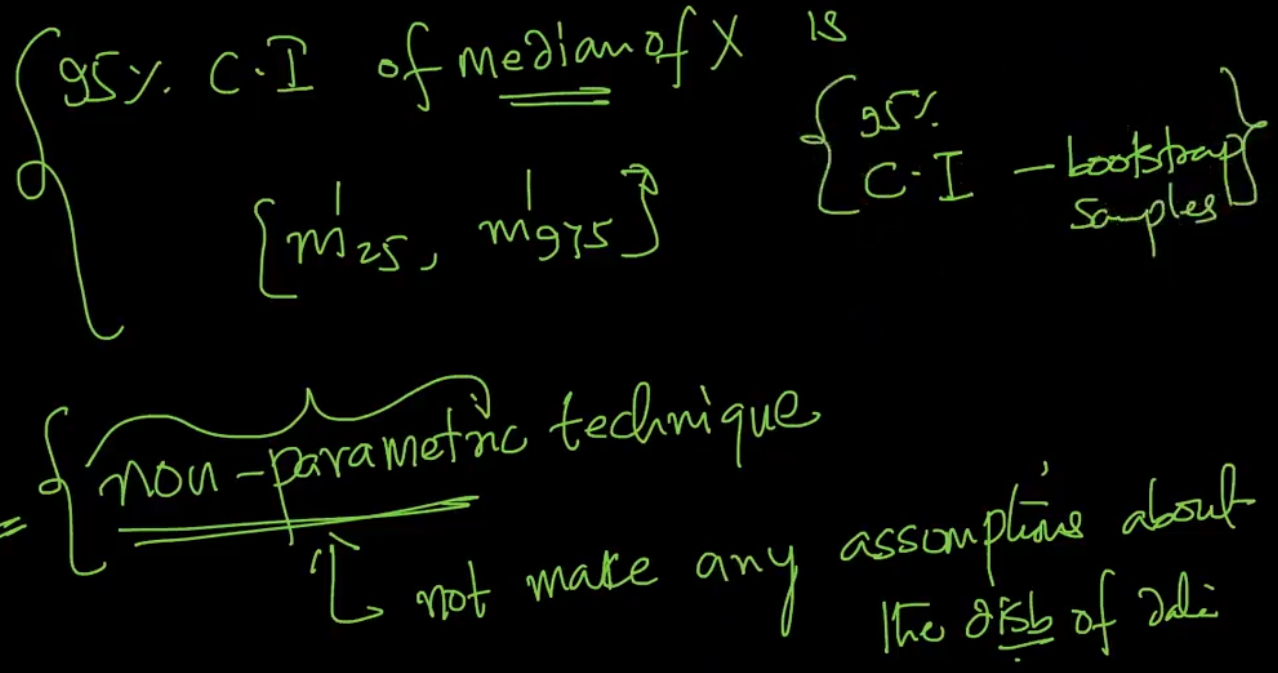 95% C.I of median of X is
[m'25, m'975]
95%
C.I - bootstrap
samples
non-parametric technique
not make any assumptions about
the disb of data